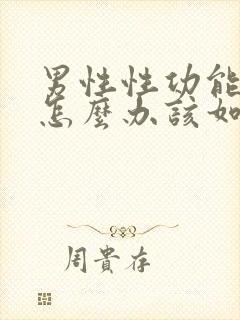 男性性功能
怎麼办該如
周貴存